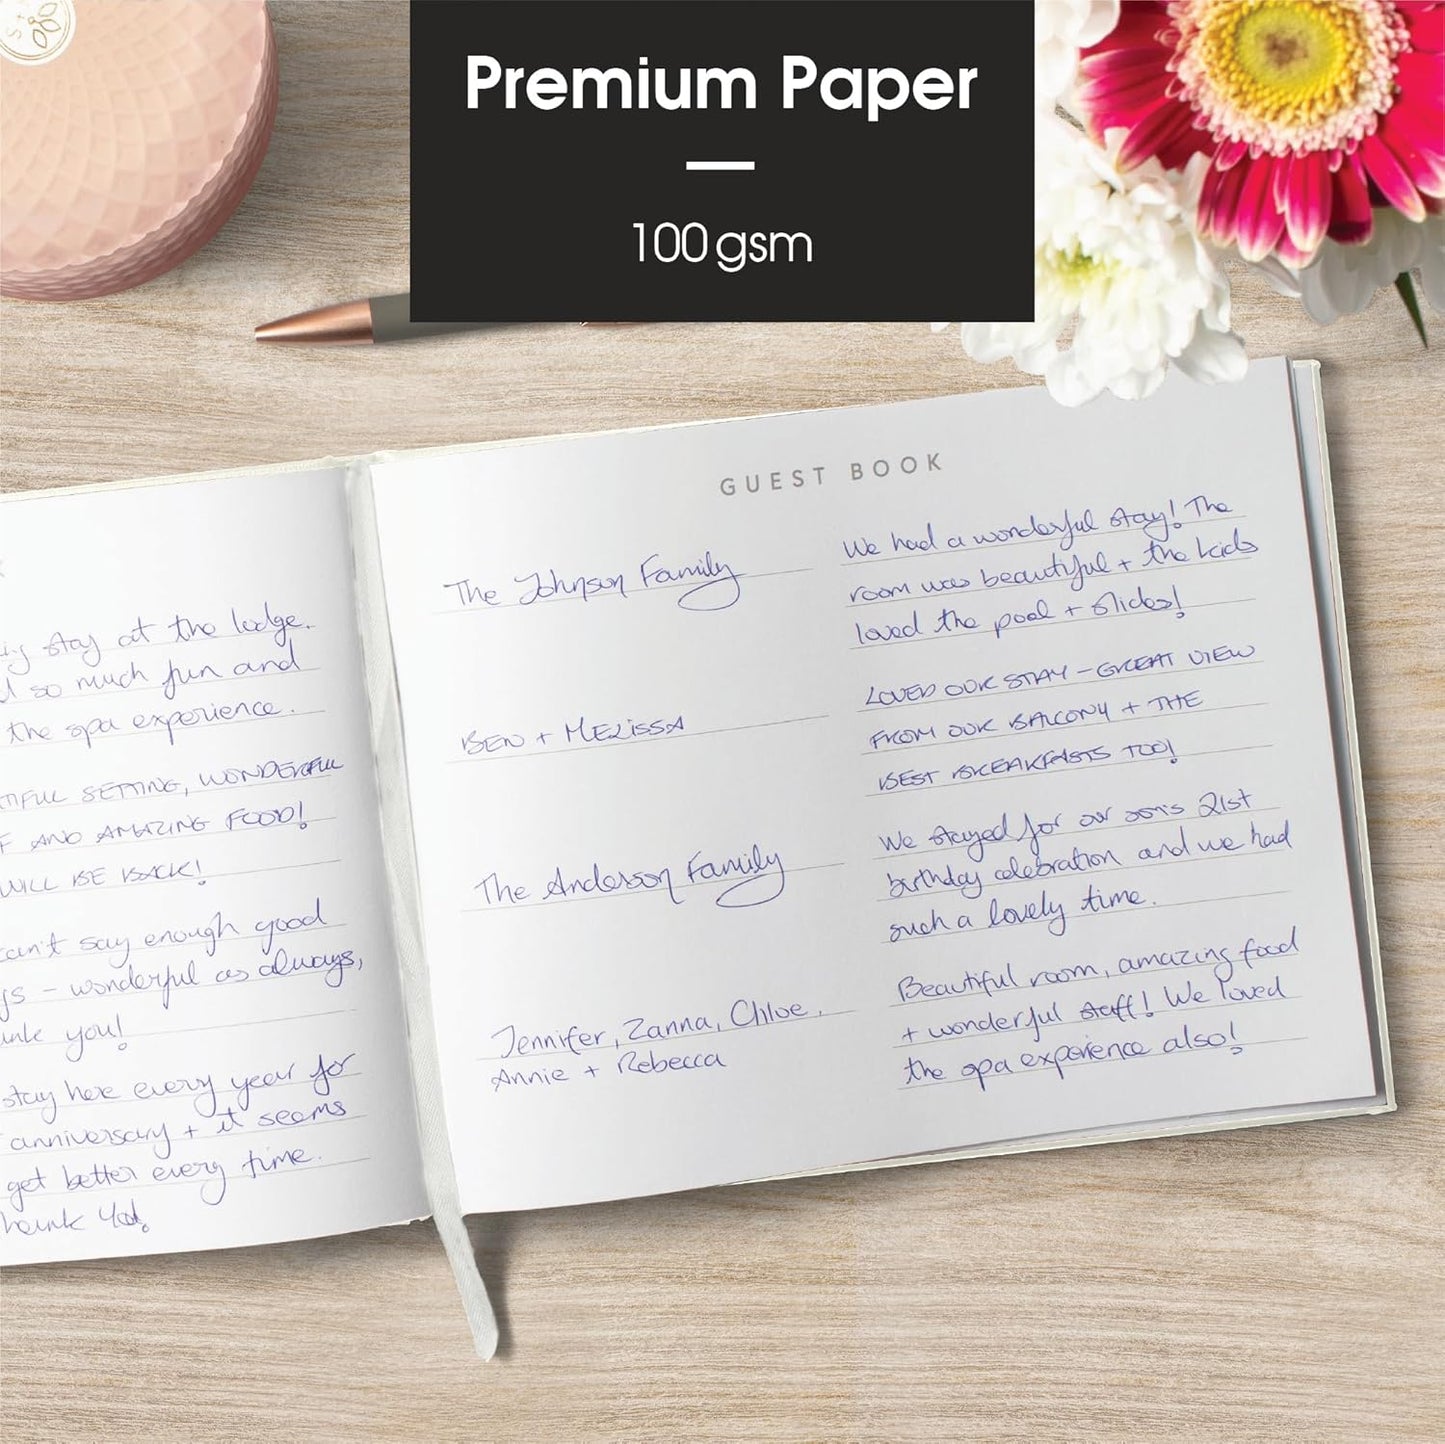 Premium Paper
100gsm
stay at the lodge.
so much fun and
the spa experience.
SETTING, WONDERFUL
AND AMAZING FOOD!
WILL BE BACK!
can't say enough good
- wonderful as always,
you!
stay here every year for
anniversary + it seems
get better every time.
You!
GUEST BOOK
The Johnson Family
We had a wonderful stay! The
room was beautiful + the kids
loved the pool + slides!
BEN + MELISSA
LOVED OUR STAY - GREAT VIEW
FROM OUR BALCONY + THE
BEST BREAKFASTS TOO!
The Anderson Family
We stayed for our son's 21st
birthday celebration and we had
such a lovely time.
Jennifer, Zanna, Chloe,
Annie + Rebecca
Beautiful room, amazing food
+ wonderful staff! We loved
the spa experience also!